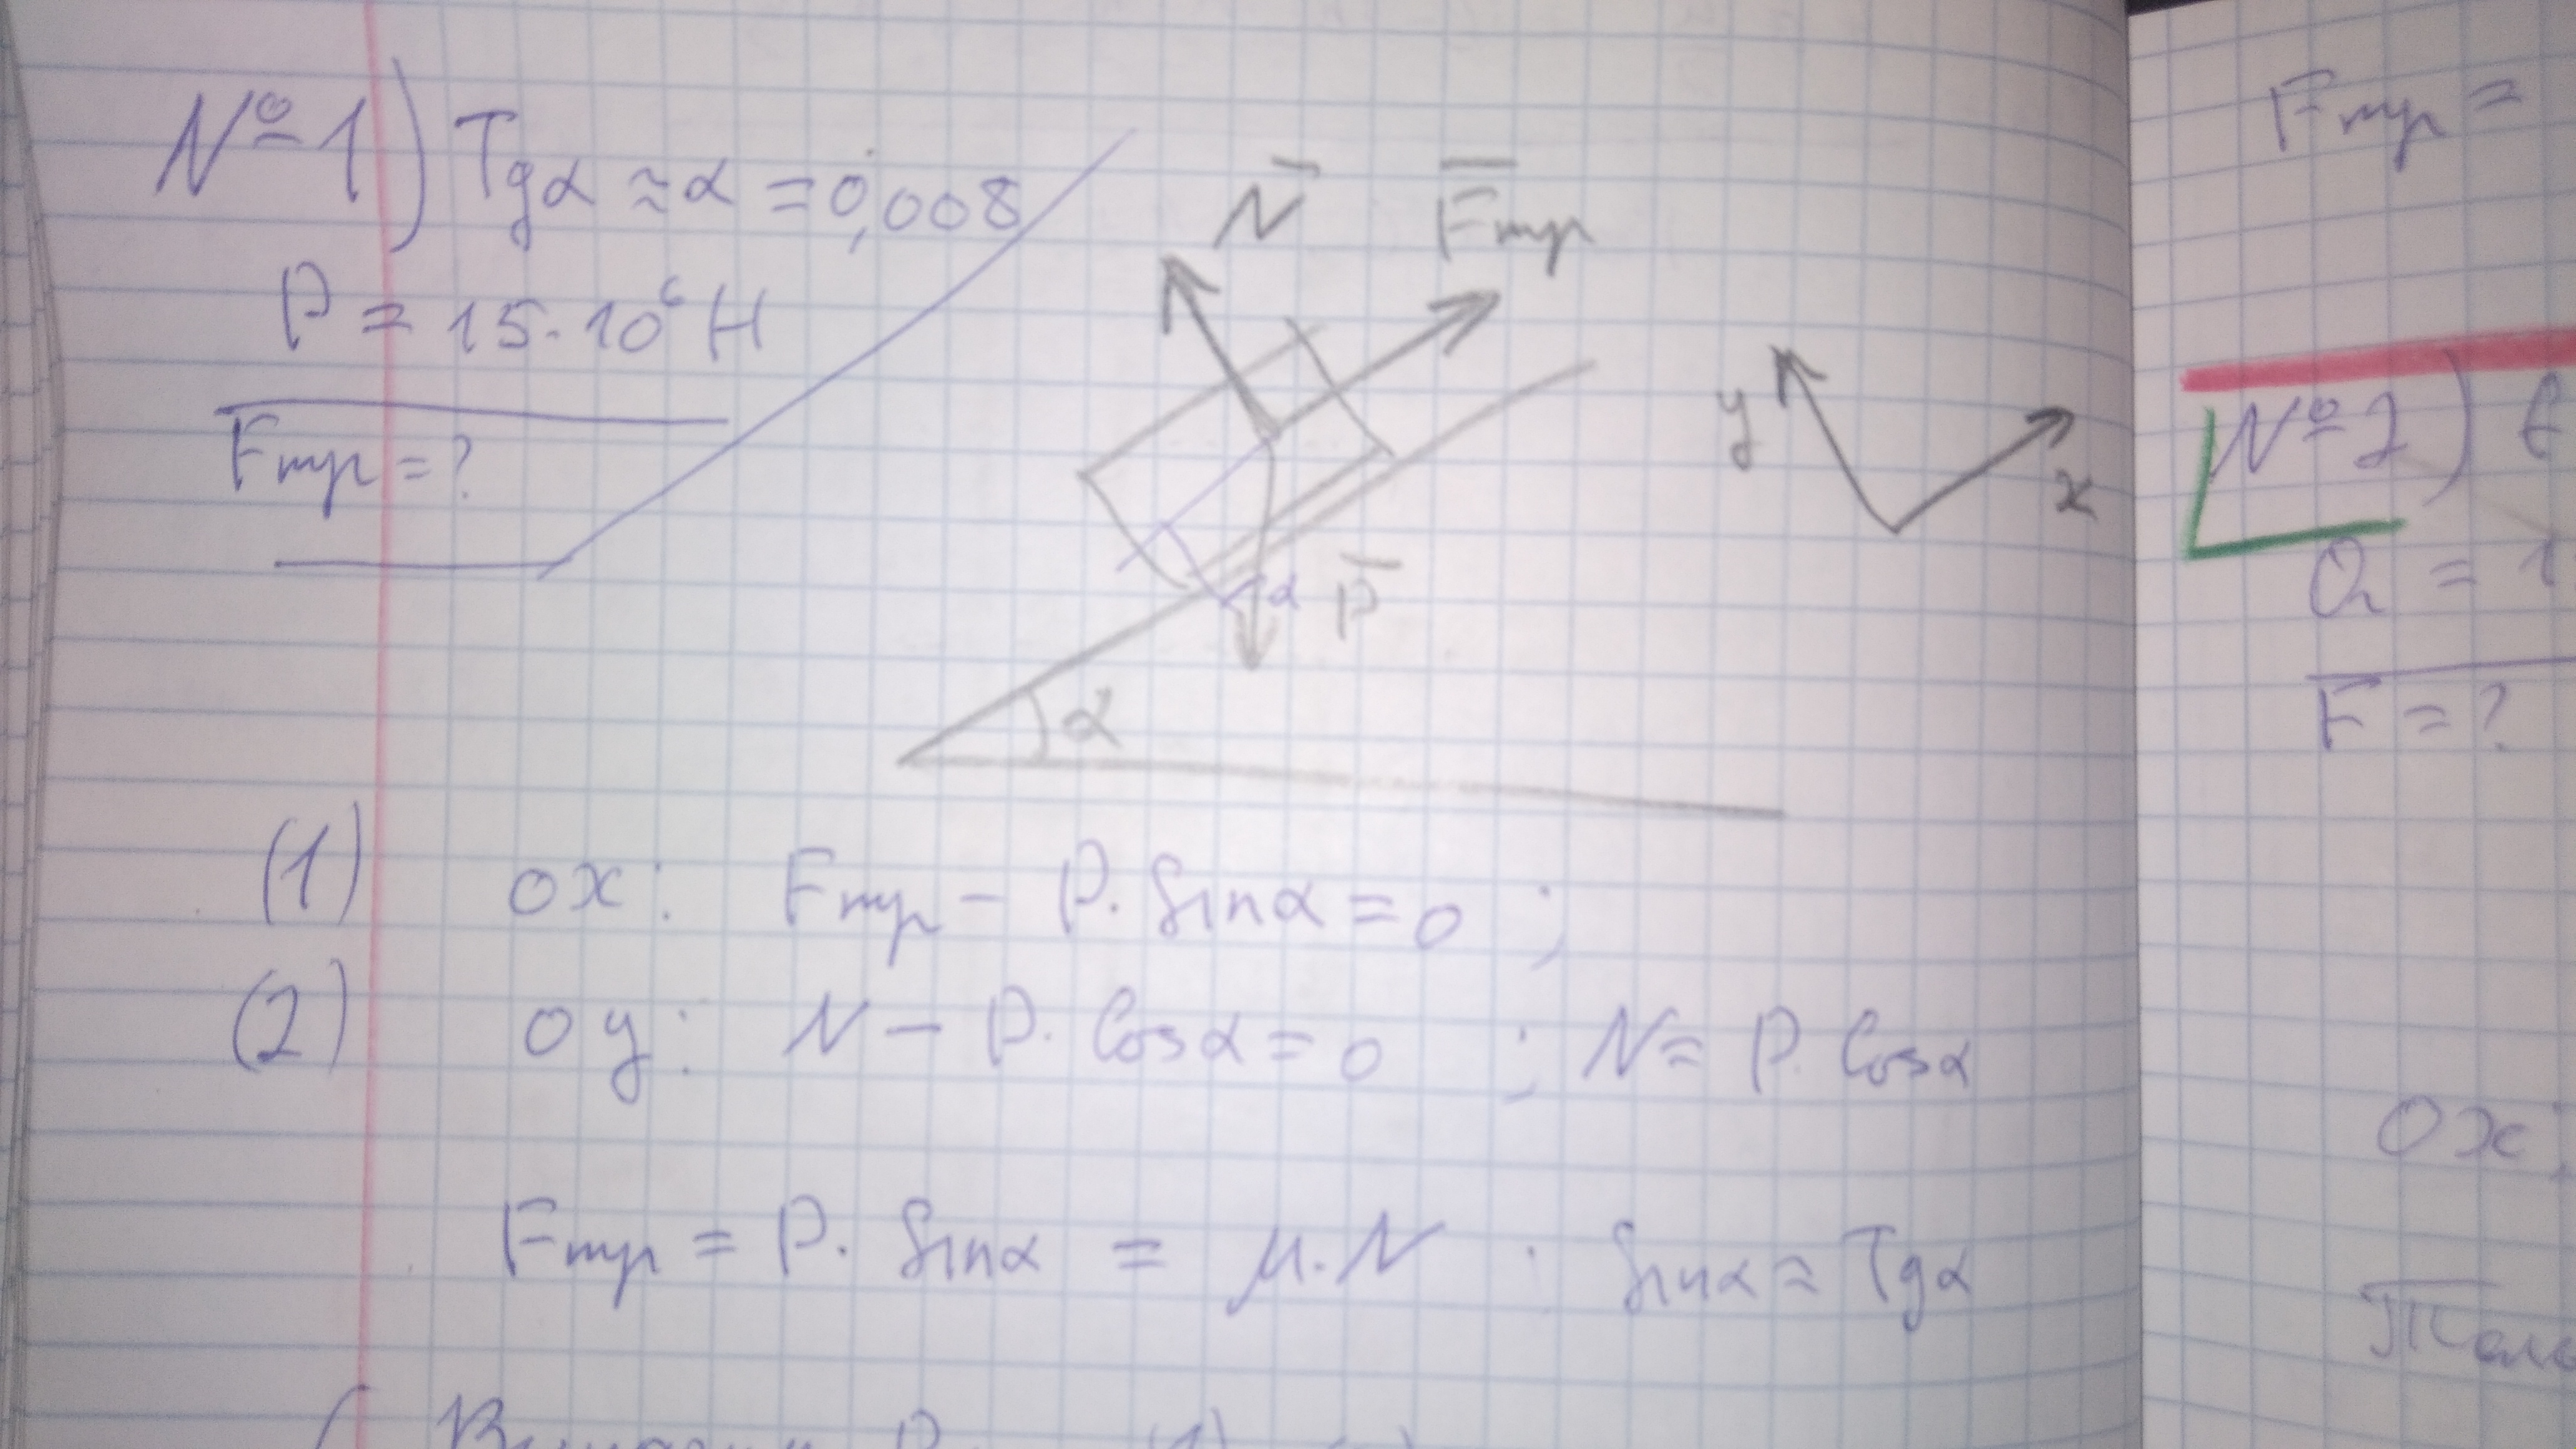 №1) Tgα ≈ α = 0,008
P = 15·10⁶ Н
Fтр = ?
N Fтр
y x
α P
α
(1) ox: Fтр − P · Sinα = 0 ;
(2) oy: N − P · Cosα = 0 ; N = P · Cosα
Fтр = P · Sinα = μ·N : Sinα ≈ Tgα
Fтр =
№2)
F = ?
Ox: